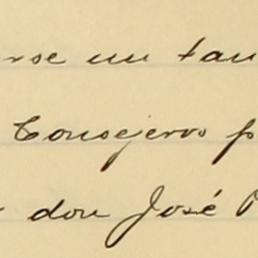 rse un tan
Consejeros p
don José